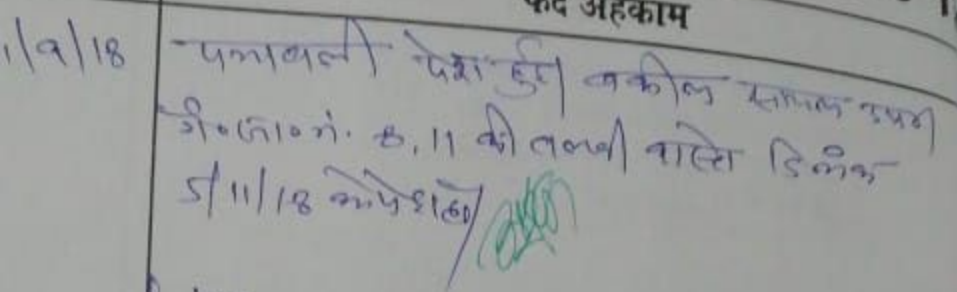 अहकाम
1/9/18 पत्रावली पेश हुई। वकील सायल उप०।
गै०सा०नं. 8, 11 की तलबी वास्ते दिनांक
5/11/18 को पेश हो।